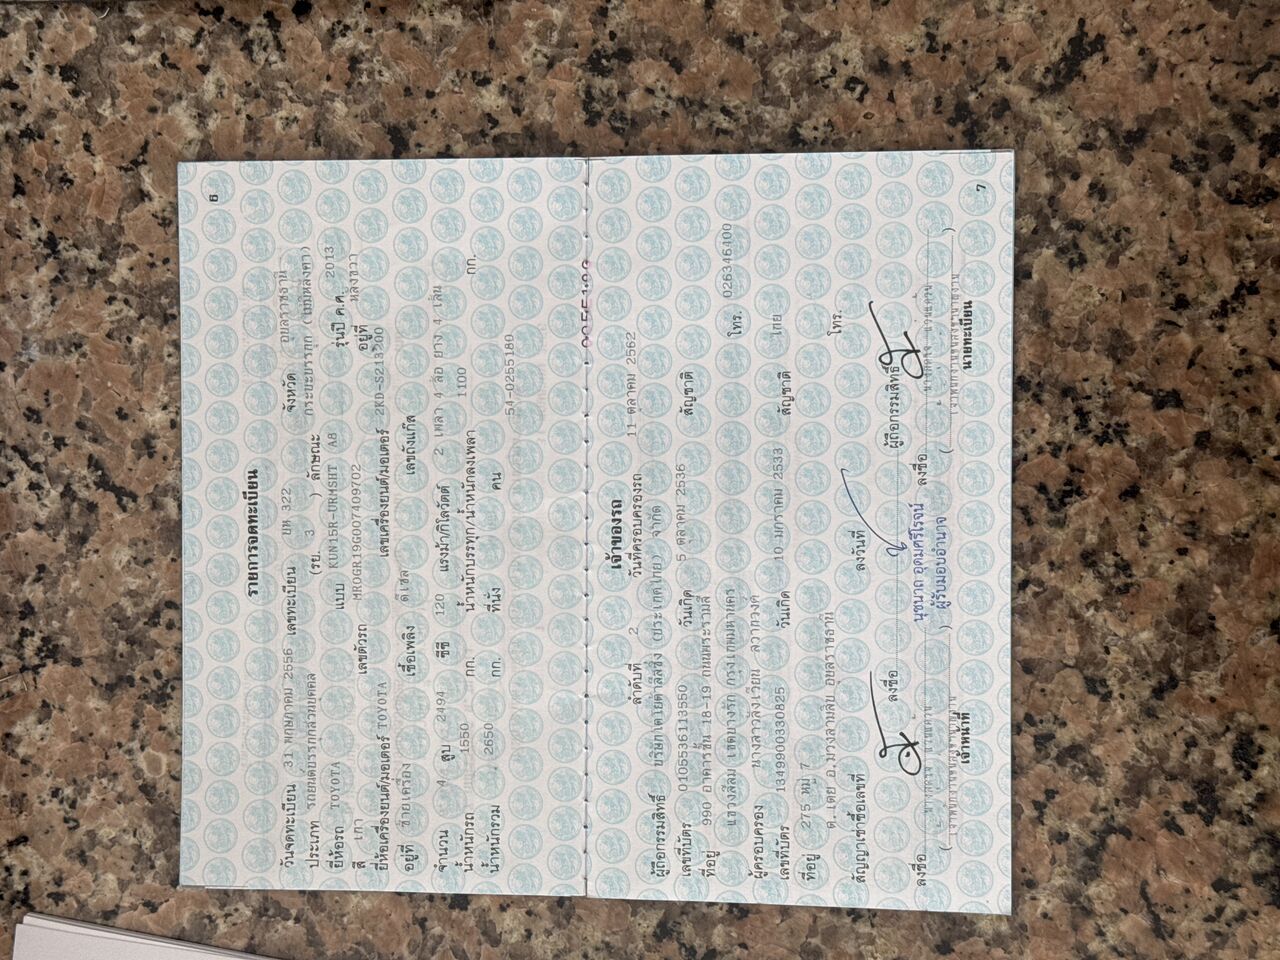 6
รายการจดทะเบียน
วันจดทะเบียน 31 พฤษภาคม 2556 เลขทะเบียน ยห 322 จังหวัด อุบลราชธานี
ประเภท รถยนต์บรรทุกส่วนบุคคล (รย. 3 ) ลักษณะ กระบะบรรทุก
ยี่ห้อรถ TOYOTA แบบ KUN15R-URMSHT A8 รุ่นปี ค.ศ. 2013
สี เทา เลขตัวรถ MR0GR19G007409702 อยู่ที่
ยี่ห้อเครื่องยนต์/มอเตอร์ TOYOTA เลขเครื่องยนต์/มอเตอร์ 2KD-S213200
อยู่ที่ ซ้ายเครื่อง เชื้อเพลิง ดีเซล เลขถังแก๊ส
จำนวน 4 สูบ 2494 ซีซี 120 แรงม้า/กิโลวัตต์ 2 เพลา 4 ล้อ ยาง 4 เส้น
น้ำหนักรถ 1550 กก. น้ำหนักบรรทุก/น้ำหนักลงเพลา 1100 กก.
น้ำหนักรวม 2650 กก. ที่นั่ง คน
54-0255180
เจ้าของรถ
ลำดับที่ 2 วันที่ครอบครองรถ 11 ตุลาคม 2562
ผู้ถือกรรมสิทธิ์ บริษัทโตโยต้าลีสซิ่ง (ประเทศไทย) จำกัด
เลขที่บัตร 0105536113550 วันเกิด 5 ตุลาคม 2536 สัญชาติ
ที่อยู่ 990 อาคารชั้น 18-19 ถนนพระรามสี่
แขวงสีลม เขตบางรัก กรุงเทพมหานคร โทร. 026346400
ผู้ครอบครอง
เลขที่บัตร 1349900330825 วันเกิด 10 มกราคม 2533 สัญชาติ ไทย
ที่อยู่ 275 หมู่ 7
ต.เตย อ.ม่วงสามสิบ อุบลราชธานี โทร.
สัญญาเช่าซื้อเลขที่ ลงวันที่
ลงชื่อ ผู้ถือกรรมสิทธิ์
นุชนาถ อุดมศรีโรจน์
ผู้รับมอบอำนาจ
ลงชื่อ ลงชื่อ
เจ้าหน้าที่ นายทะเบียน
7